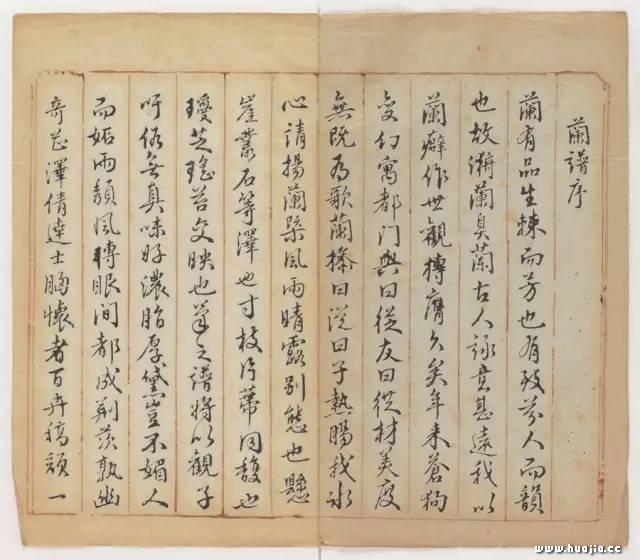 蘭譜序
蘭有品生棘而芳也有致芬人而韻
也故漪蘭臭蘭古人詠意甚遠我以
蘭癖作世觀摶膺久矣年来蒼狗
變幻寓都門與曰從友曰從材美度
無既為歌蘭操曰從曰子熱腸我冰
心請揚蘭槩風雨晴露別態也懸
崖叢石等澤也寸枝片蒂同馥也
瓊芝瑤苔交映也筆之譜將以觀子
吁俗無真味好濃脂厚黛豈不媚人
而妬雨頽風轉眼间都成荆茨孰幽
奇澤倩達士胸懷者百卉稿一
www.huajia.cc